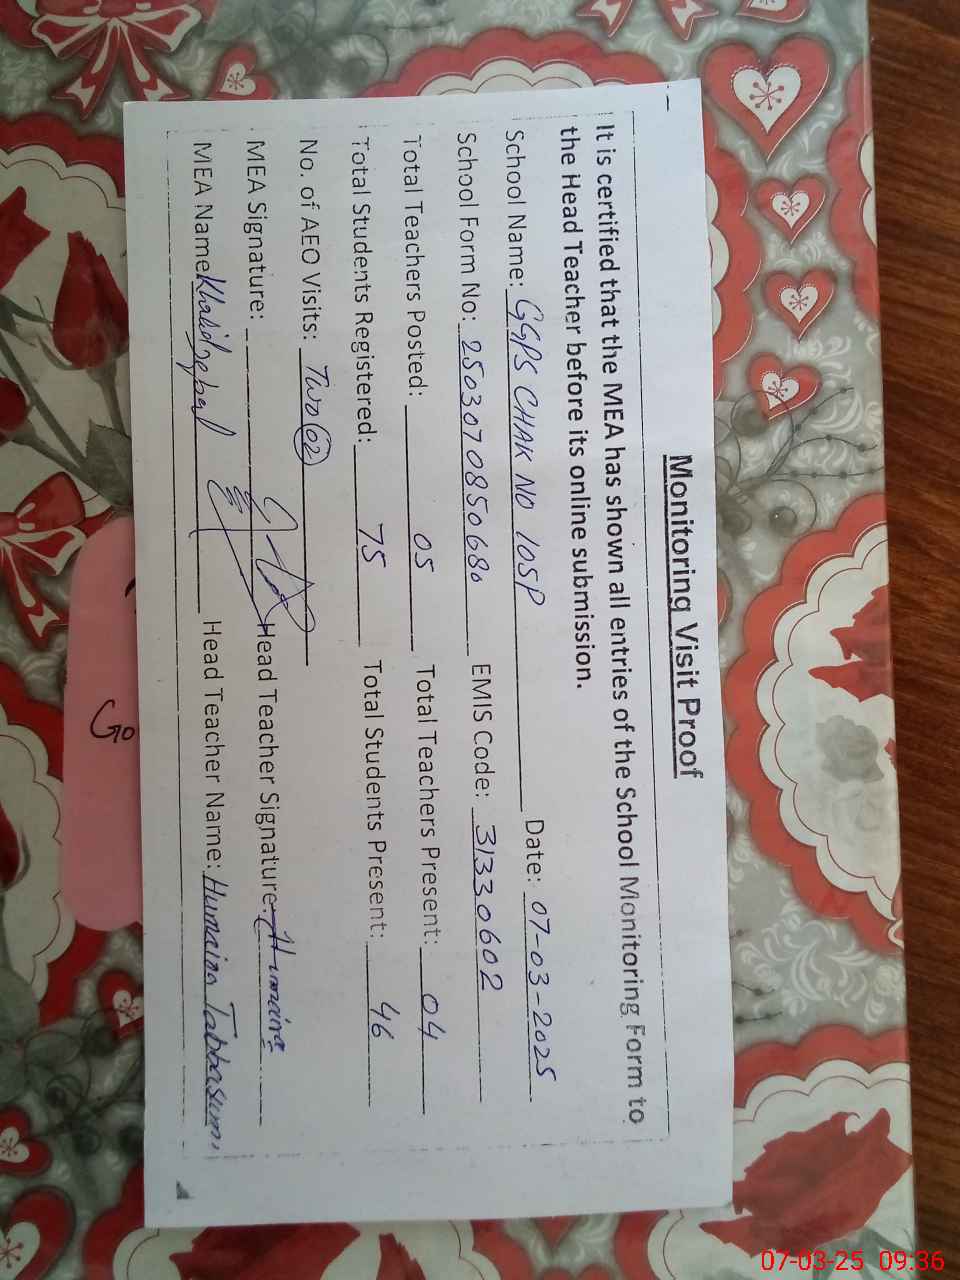 Monitoring Visit Proof
It is certified that the MEA has shown all entries of the School Monitoring Form to
the Head Teacher before its online submission.
School Name: GGPS CHAK NO 105P Date: 07-03-2025
School Form No: 2503070850680 EMIS Code: 31330602
Total Teachers Posted: 05 Total Teachers Present: 04
Total Students Registered: 75 Total Students Present: 46
No. of AEO Visits: Two 02
MEA Signature: Head Teacher Signature: Humaira
MEA Name Khalid Iqbal Head Teacher Name: Humaira Tabbasum
Go
07-03-25 09:36